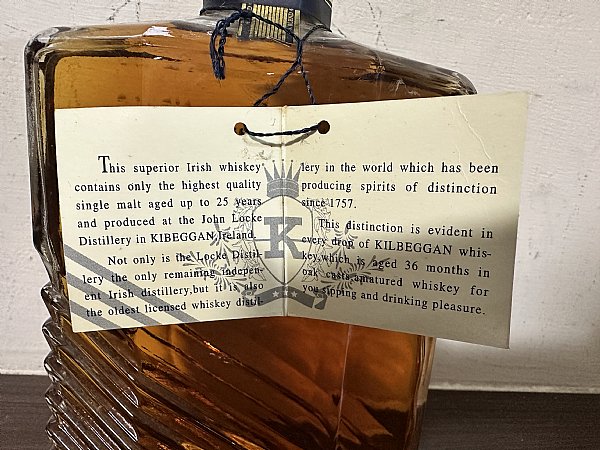 This superior Irish whiskey
contains only the highest quality
single malt aged up to 25 years
and produced at the John Locke
Distillery in KIBEGGAN Ireland.
Not only is the Locke Distil-
lery the only remaining indepen-
ent Irish distillery,but it is also
the oldest licensed whiskey distil-
lery in the world which has been
producing spirits of distinction
since 1757.
This distinction is evident in
every drop of KILBEGGAN whis-
key,which is aged 36 months in
oak casts,amatured whiskey for
you sipping and drinking pleasure.
K